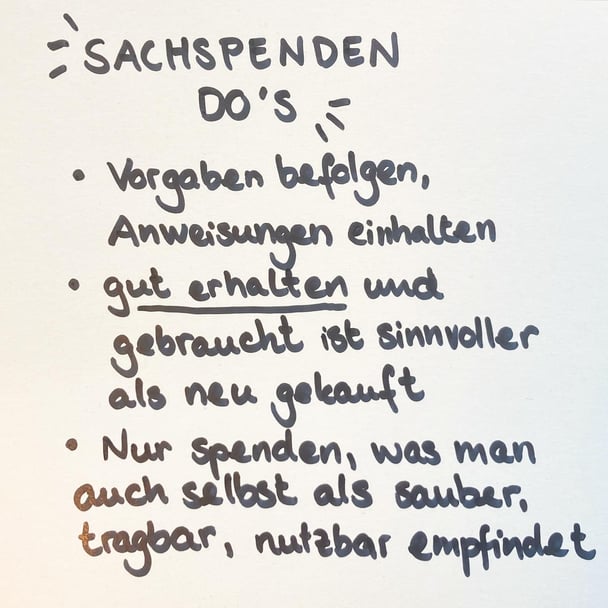 SACHSPENDEN
DO'S
• Vorgaben befolgen,
Anweisungen einhalten
• gut erhalten und
gebraucht ist sinnvoller
als neu gekauft
• Nur spenden, was man
auch selbst als sauber,
tragbar, nutzbar empfindet